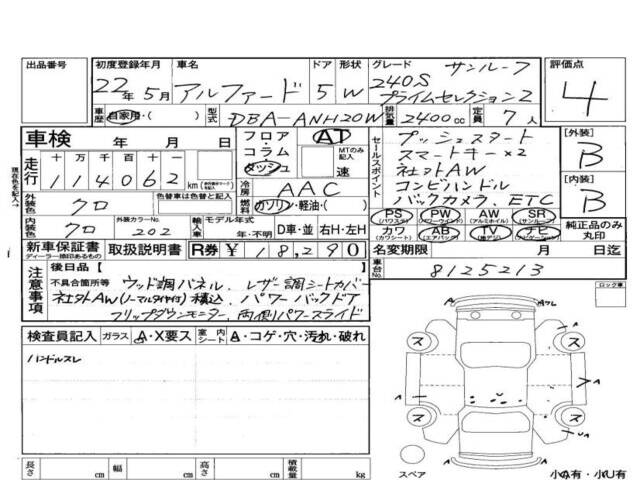 出品番号
初度登録年月 車名 ドア 形状 グレード サンルーフ
22年 5月 アルファード 5 W 240S
プライムセレクション2
評価点
4
車歴 自家用・( ) 型式 DBA-ANH20W 排気量 2400cc 定員 7人
車検 年 月 日
走行 十 万 千 百 十 一
114062 km
フロア AT
コラム MTのみ記入
ダッシュ 速
冷房 AAC
燃料 ガソリン・軽油・( )
外装色 クロ 色替車は色替と記入 色替車・元色( )
内装色 クロ 外装カラーNo. 202
輸入車 モデル年式 年・不明 D車・並 右H・左H
セールスポイント
プッシュスタート
スマートキー×2
社外AW
コンビハンドル
バックカメラ、ETC
[外装]
B
[内装]
B
PS (パワステ) PW (パワーウインド) AW (アルミホイル) SR (サンルーフ)
カワ (カワシート) AB (エアバック) TV (地デジ) ナビ (ナビゲーション)
純正品のみ丸印
新車保証書 取扱説明書 R券 ¥ 18,290
ディーラー捺印あるもの
名変期限 月 日迄
車台No. 8125213
注意事項
後日品/
不具合箇所等 ウッド調パネル、レザー調シートカバー
社外AW(ノーマルタイヤ付)積込、パワーバックドア
フリップダウンモニター、両側パワースライド
検査員記入 ガラス A・X要ス 室内シート A・コゲ・穴・汚れ・破れ
ハンドルスレ
ロック車
A
ス ス
A A
ス ス
A
スペア
小A有・小U有
長さ cm 幅 cm 高さ cm 積載量 kg